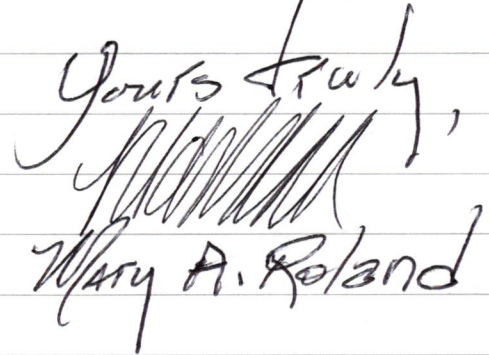 Yours truly,
Mary A. Roland